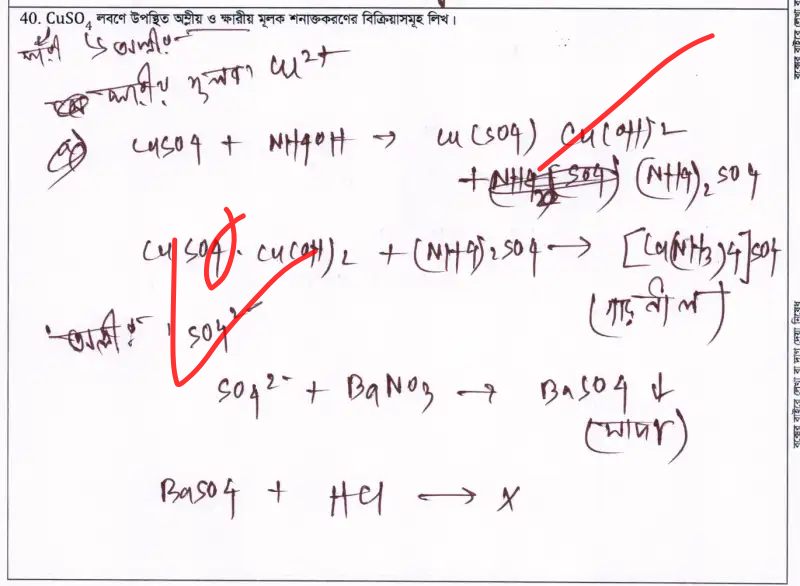 40. CuSO4 লবণে উপস্থিত অম্লীয় ও ক্ষারীয় মূলক শনাক্তকরণের বিক্রিয়াসমূহ লিখ।
ক্ষারীয় মূলক Cu2+
CuSO4 + NH4OH → Cu(SO4) Cu(OH)2
+ (NH4)2SO4
CuSO4. Cu(OH)2 + (NH4)2SO4 → [Cu(NH3)4]SO4
(গাঢ় নীল)
অম্লীয় SO4 2-
SO4 2- + BaNO3 → BaSO4 ↓
BaSO4 + HCl → X